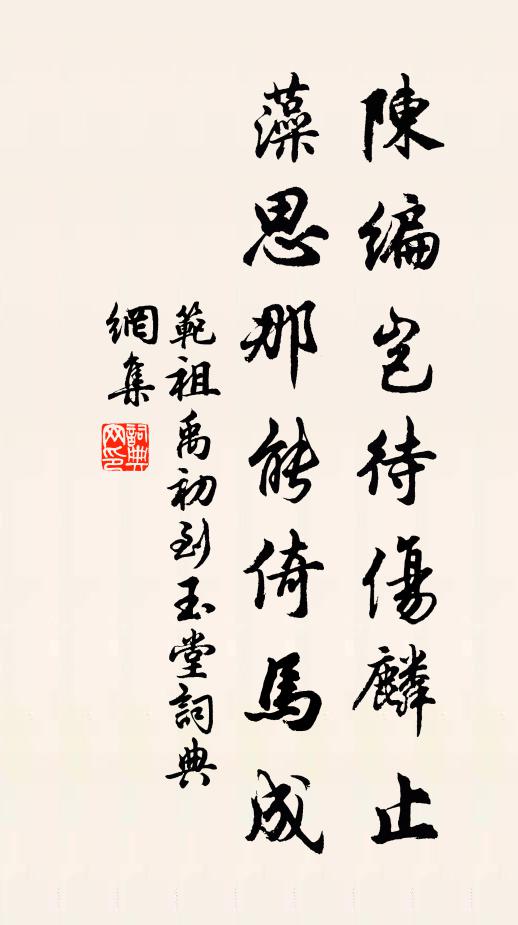 陳編豈待傷麟止
藻思那能倚馬成
範祖禹初到玉堂詞典
網集
詞典
网印